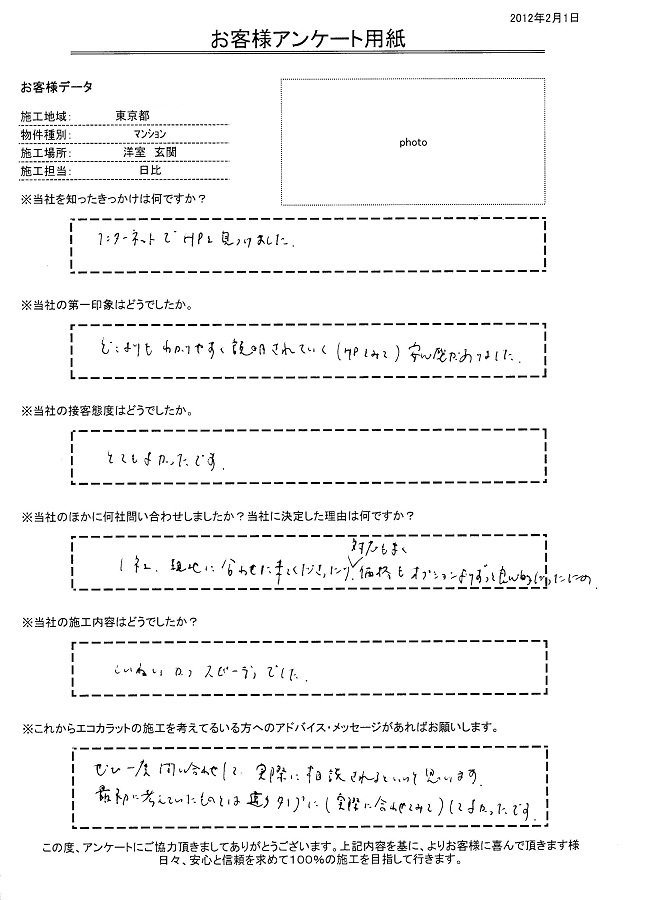 2012年2月1日
お客様アンケート用紙
お客様データ
施工地域： 東京都
物件種別： マンション
施工場所： 洋室 玄関
施工担当： 日比
photo
※当社を知ったきっかけは何ですか？
インターネットでHPを見つけました。
※当社の第一印象はどうでしたか。
どこよりもわかりやすく説明されていて（HPをみて）安心感がありました。
※当社の接客態度はどうでしたか。
とてもよかったです。
※当社のほかに何社問い合わせしましたか？当社に決定した理由は何ですか？
対応もよく
1社、現地に合わせに来てくださったり、価格もオプションより
※当社の施工内容はどうでしたか？
ていねいかつスピーディでした。
※これからエコカラットの施工を考えてるいる方へのアドバイス・メッセージがあればお願いします。
ぜひ一度問い合わせして、実際に相談されるといいと思います。
最初に考えていたものとは違うタイプに（実際に合わせてみて）してよかったです。
この度、アンケートにご協力頂きましてありがとうございます。上記内容を基に、よりお客様に喜んで頂きます様
日々、安心と信頼を求めて100％の施工を目指して行きます。